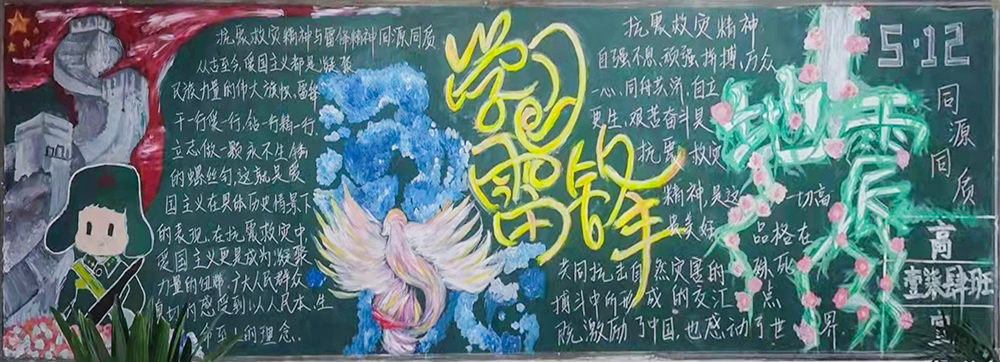 抗震救灾精神与雷锋精神同源同质
从古至今,爱国主义都是凝聚
民族力量的伟大旗帜,雷锋
干一行爱一行,钻一行精一行,
立志做一颗永不生锈
的螺丝钉,这就是爱
国主义在具体历史情景下
的表现,在抗震救灾中
爱国主义更是成为凝聚
力量的纽带,广大人民群众
真切的感受到以人民本,生
命至上的理念。
学习
雷锋
抗震救灾精神
自强不息、顽强拼搏,万众
一心、同舟共济,自立
更生、艰苦奋斗是
抗震救灾
精神,是这一切高
品美好品格在
共同抗击自然灾害的殊死
搏斗中所形成的交汇点
既激励了中国,也感动了世界.
地震
5·12
同源同质
高
壹柒肆班
宣